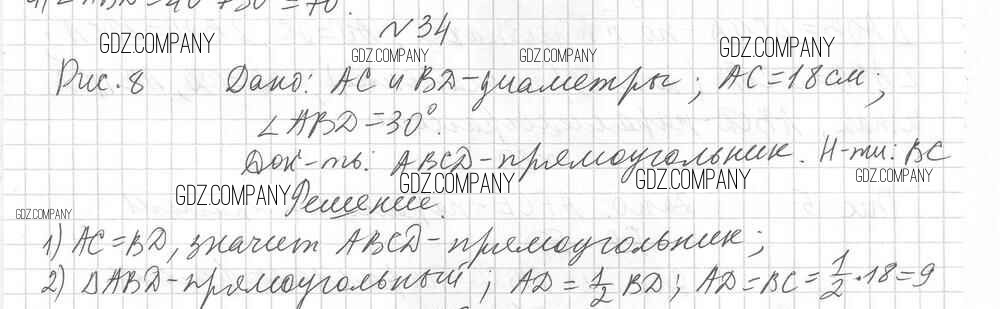 ∠ABD = 40° + 30° = 70°.
№ 34
GDZ.COMPANY GDZ.COMPANY GDZ.COMPANY GDZ.COMPANY
Рис. 8 Дано: AC и BD - диаметры; AC = 18 см;
∠ABD = 30°.
Док-ть: ABCD - прямоугольник. Н-ти: BC
GDZ.COMPANY GDZ.COMPANY GDZ.COMPANY GDZ.COMPANY
Решение.
GDZ.COMPANY
1) AC = BD, значит ABCD - прямоугольник;
2) ΔABD - прямоугольный; AD = 1/2 BD; AD = BC = 1/2 · 18 = 9